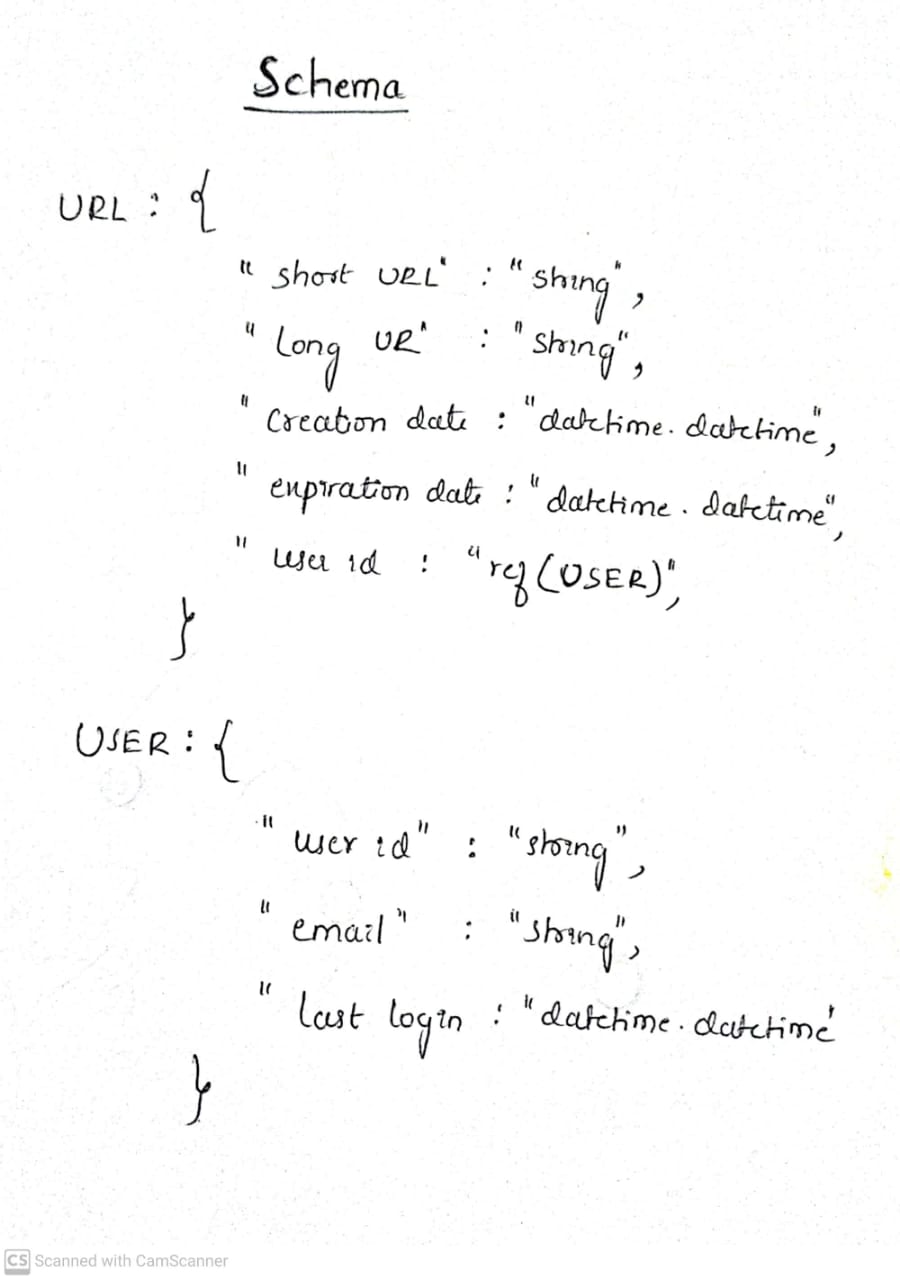 Schema
URL : {
" short URL" : "string",
" Long UR" : "string",
" Creation date : "datetime. datetime",
" expiration date : "datetime . datetime",
" user id : "ref (USER)",
}
USER : {
" user id" : "string",
" email" : "string",
" last login : "datetime. datetime'
}
CS Scanned with CamScanner